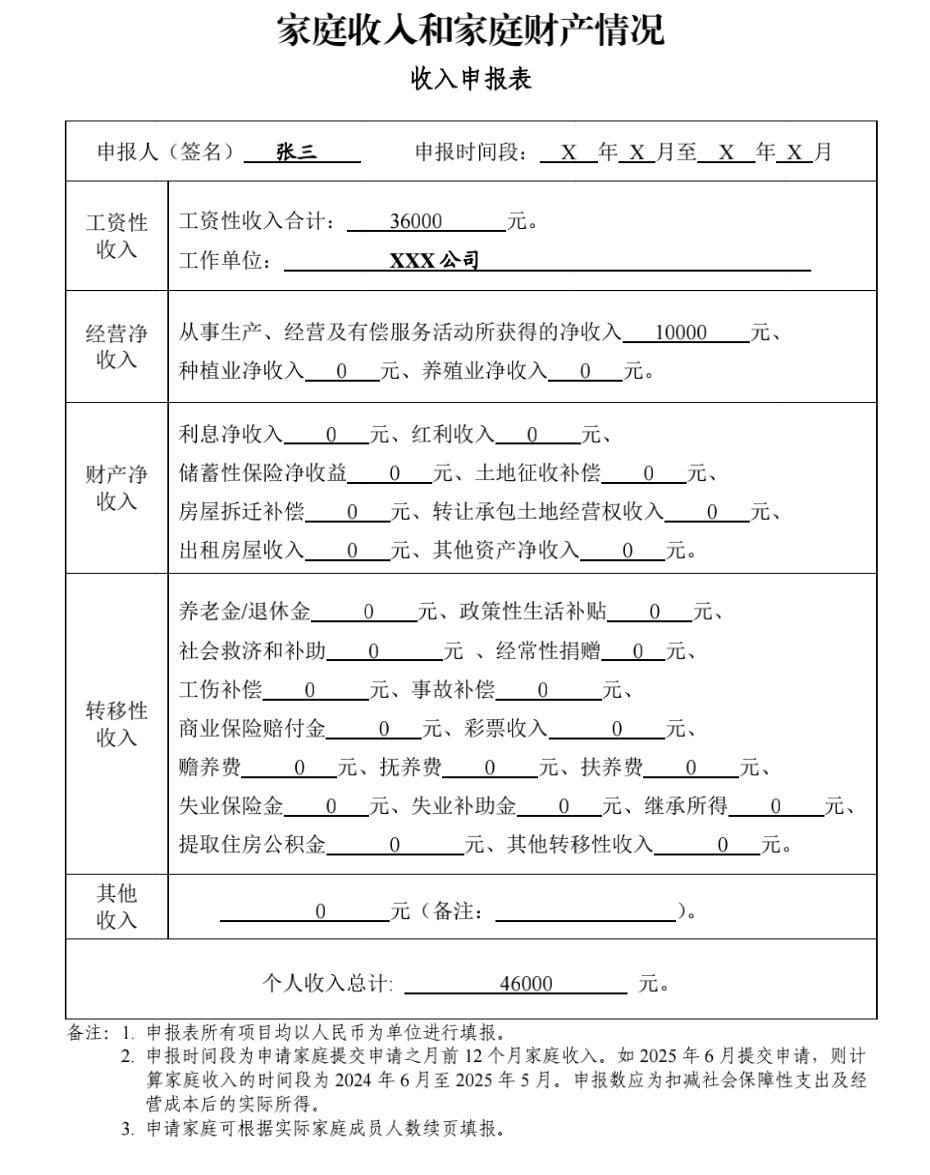 家庭收入和家庭财产情况
收入申报表
申报人（签名） 张三 申报时间段： X 年 X 月至 X 年 X 月
工资性
收入
工资性收入合计： 36000 元。
工作单位： XXX公司
经营净
收入
从事生产、经营及有偿服务活动所获得的净收入 10000 元、
种植业净收入 0 元、养殖业净收入 0 元。
财产净
收入
利息净收入 0 元、红利收入 0 元、
储蓄性保险净收益 0 元、土地征收补偿 0 元、
房屋拆迁补偿 0 元、转让承包土地经营权收入 0 元、
出租房屋收入 0 元、其他资产净收入 0 元。
转移性
收入
养老金/退休金 0 元、政策性生活补贴 0 元、
社会救济和补助 0 元 、经常性捐赠 0 元、
工伤补偿 0 元、事故补偿 0 元、
商业保险赔付金 0 元、彩票收入 0 元、
赡养费 0 元、抚养费 0 元、扶养费 0 元、
失业保险金 0 元、失业补助金 0 元、继承所得 0 元、
提取住房公积金 0 元、其他转移性收入 0 元。
其他
收入
0 元（备注： ）。
个人收入总计: 46000 元。
备注：1. 申报表所有项目均以人民币为单位进行填报。
2. 申报时间段为申请家庭提交申请之月前 12 个月家庭收入。如 2025 年 6 月提交申请，则计
算家庭收入的时间段为 2024 年 6 月至 2025 年 5 月。申报数应为扣减社会保障性支出及经
营成本后的实际所得。
3. 申请家庭可根据实际家庭成员人数续页填报。